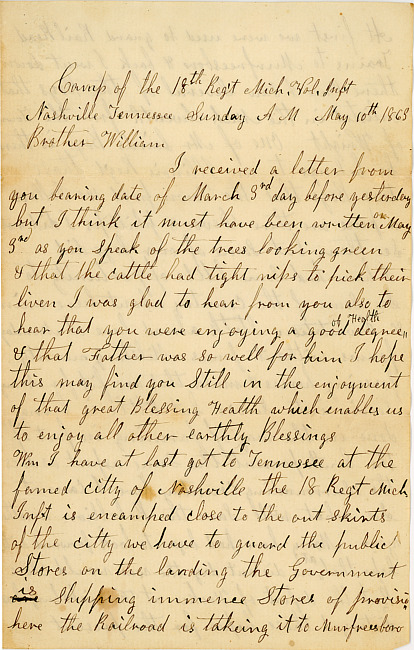 Camp of the 18th Reg't Mich. Vol. Inft
Nashville Tennessee Sunday A M May 10th 1863
Brother William
I received a letter from
you bearing date of March 3rd day before yesterday
but I think it must have been written on May
3rd as you Speak of the trees looking green
& that the cattle had tight nips to pick their
liven I was glad to hear from you also to
hear that you were enjoying a good degree of Health
& that Father was so well for him I hope
this may find you Still in the enjoyment
of that great Blessing Health which enables us
to enjoy all other earthly Blessings
Wm I have at last got to Tennessee at the
famed citty of Nashville the 18 Reg't Mich
Inft is encamped close to the out skirts
of the citty we have to guard the public
Stores on the landing the Government
is Shipping immence Stores of provisi
here the Railroad is takeing it to Murfreesboro